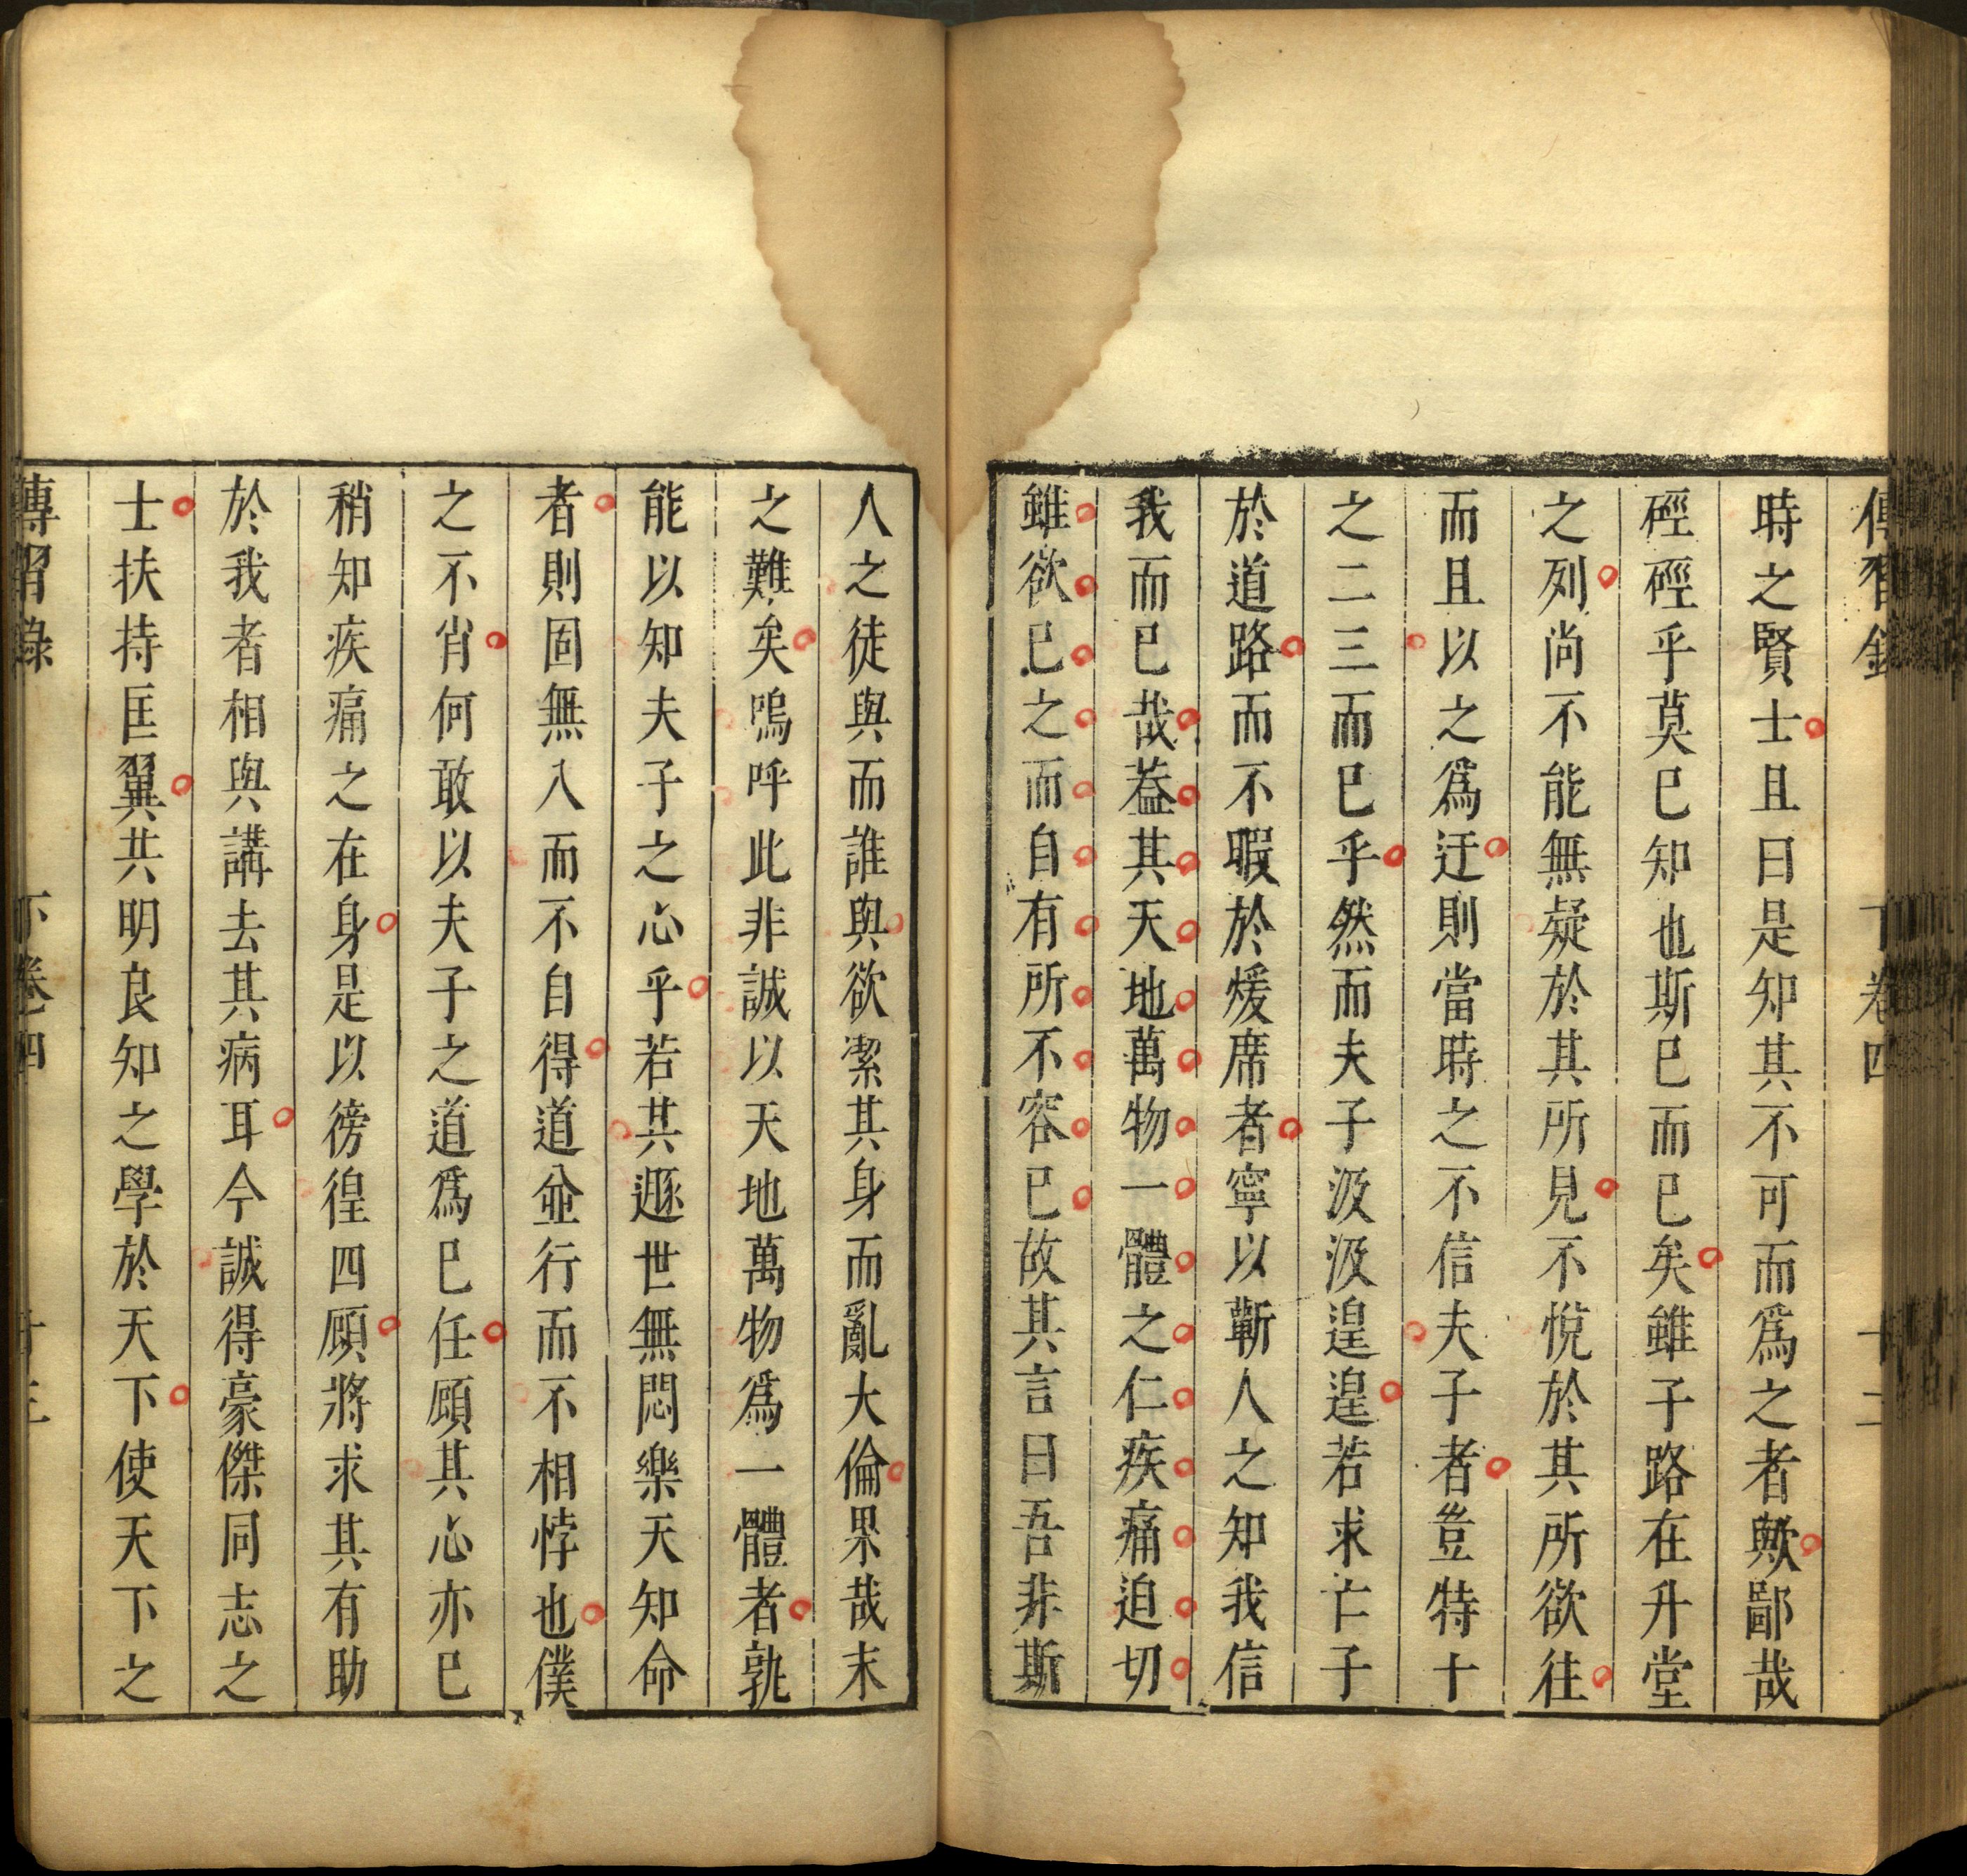 傳習錄 下卷四 十二
時之賢士且曰是知其不可而爲之者歟鄙哉
硜硜乎莫已知也斯已而已矣雖子路在升堂
之列尚不能無疑於其所見不悅於其所欲往
而且以之爲迂則當時之不信夫子者豈特十
之二三而已乎然而夫子汲汲遑遑若求亡子
於道路而不暇於煖席者寧以蘄人之知我信
我而已哉葢其天地萬物一體之仁疾痛迫切
雖欲已之而自有所不容已故其言曰吾非斯
人之徒與而誰與欲潔其身而亂大倫果哉末
之難矣嗚呼此非誠以天地萬物爲一體者孰
能以知夫子之心乎若其遯世無悶樂天知命
者則固無入而不自得道並行而不相悖也僕
之不肖何敢以夫子之道爲已任顧其心亦已
稍知疾痛之在身是以徬徨四顧將求其有助
於我者相與講去其病耳今誠得豪傑同志之
士扶持匡翼共明良知之學於天下使天下之
傳習錄 下卷四